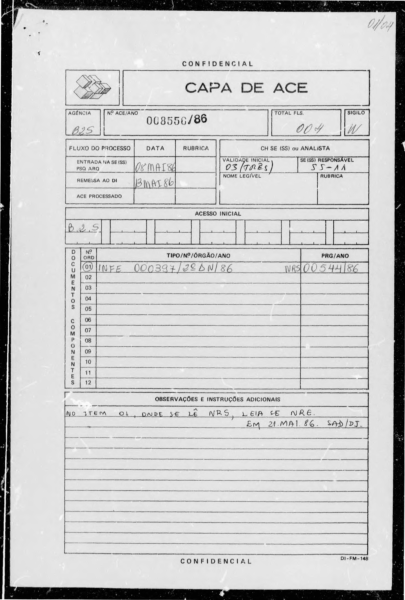 01/04
CONFIDENCIAL
CAPA DE ACE
AGÊNCIA
B25
Nº ACE/ANO
008556/86
TOTAL FLS.
004
SIGILO
FLUXO DO PROCESSO
DATA
RUBRICA
CH SE (SS) ou ANALISTA
ENTRADA NA SE (SS) PSG ARQ
08MAI86
VALIDADE INICIAL
03 (TRÊS)
SE (SS) RESPONSÁVEL
SS-11
REMESSA AO DI
MAI86
NOME LEGÍVEL
RUBRICA
ACE PROCESSADO
ACESSO INICIAL
B 2 5
DOCUMENTOS COMPONENTES
Nº ORD
TIPO/Nº/ÓRGÃO/ANO
PRG/ANO
01 INFE 000397/2ª DN/86 NRS 00544/86
02
03
04
05
06
07
08
09
10
11
12
OBSERVAÇÕES E INSTRUÇÕES ADICIONAIS
NO ITEM 01, ONDE SE LÊ NRS, LEIA SE NRE.
EM 21 MAI 86. SAD/DI.
DI-FM-145
CONFIDENCIAL